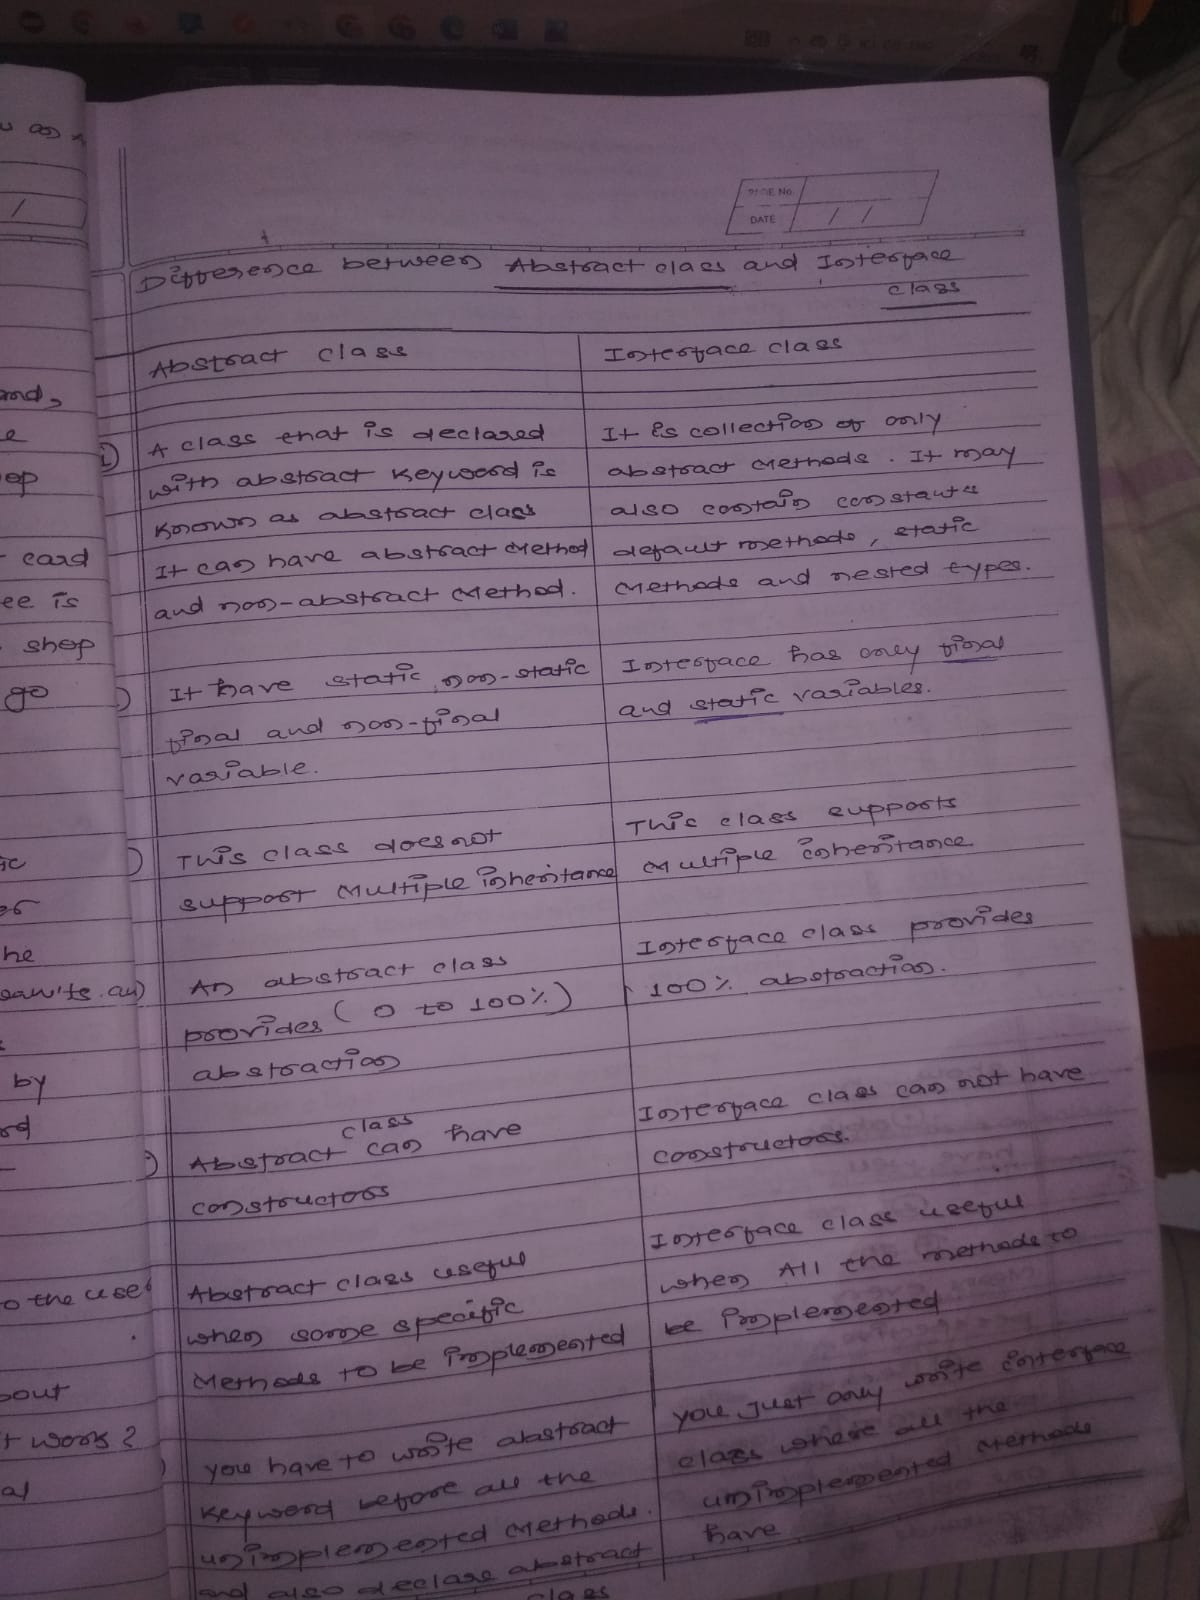 PAGE No.
DATE / /
Difference between Abstract class and Interface
class
Abstract class
Interface class
A class that is declared
with abstract keyword is
known as abstract class
It can have abstract Method
and non-abstract Method.
It is collection of only
abstract Methods. It may
also contain constants
default methods, static
Methods and nested types.
It have static, non-static
final and non-final
variable.
Interface has only final
and static variables.
This class does not
support Multiple inheritance
This class supports
Multiple inheritance
An abstract class
provides (0 to 100%)
abstraction
Interface class provides
100% abstraction.
class
Abstract can have
constructors
Interface class can not have
constructors.
Abstract class useful
when some specific
Methods to be implemented
Interface class useful
when All the methods to
be implemented
you have to write abstract
keyword before all the
unimplemented Methods.
and also declare abstract
class
you just only write interface
class where all the
unimplemented Methods
have
/
card
ee is
shop
go
he
by
o the use
bout
t work?
al